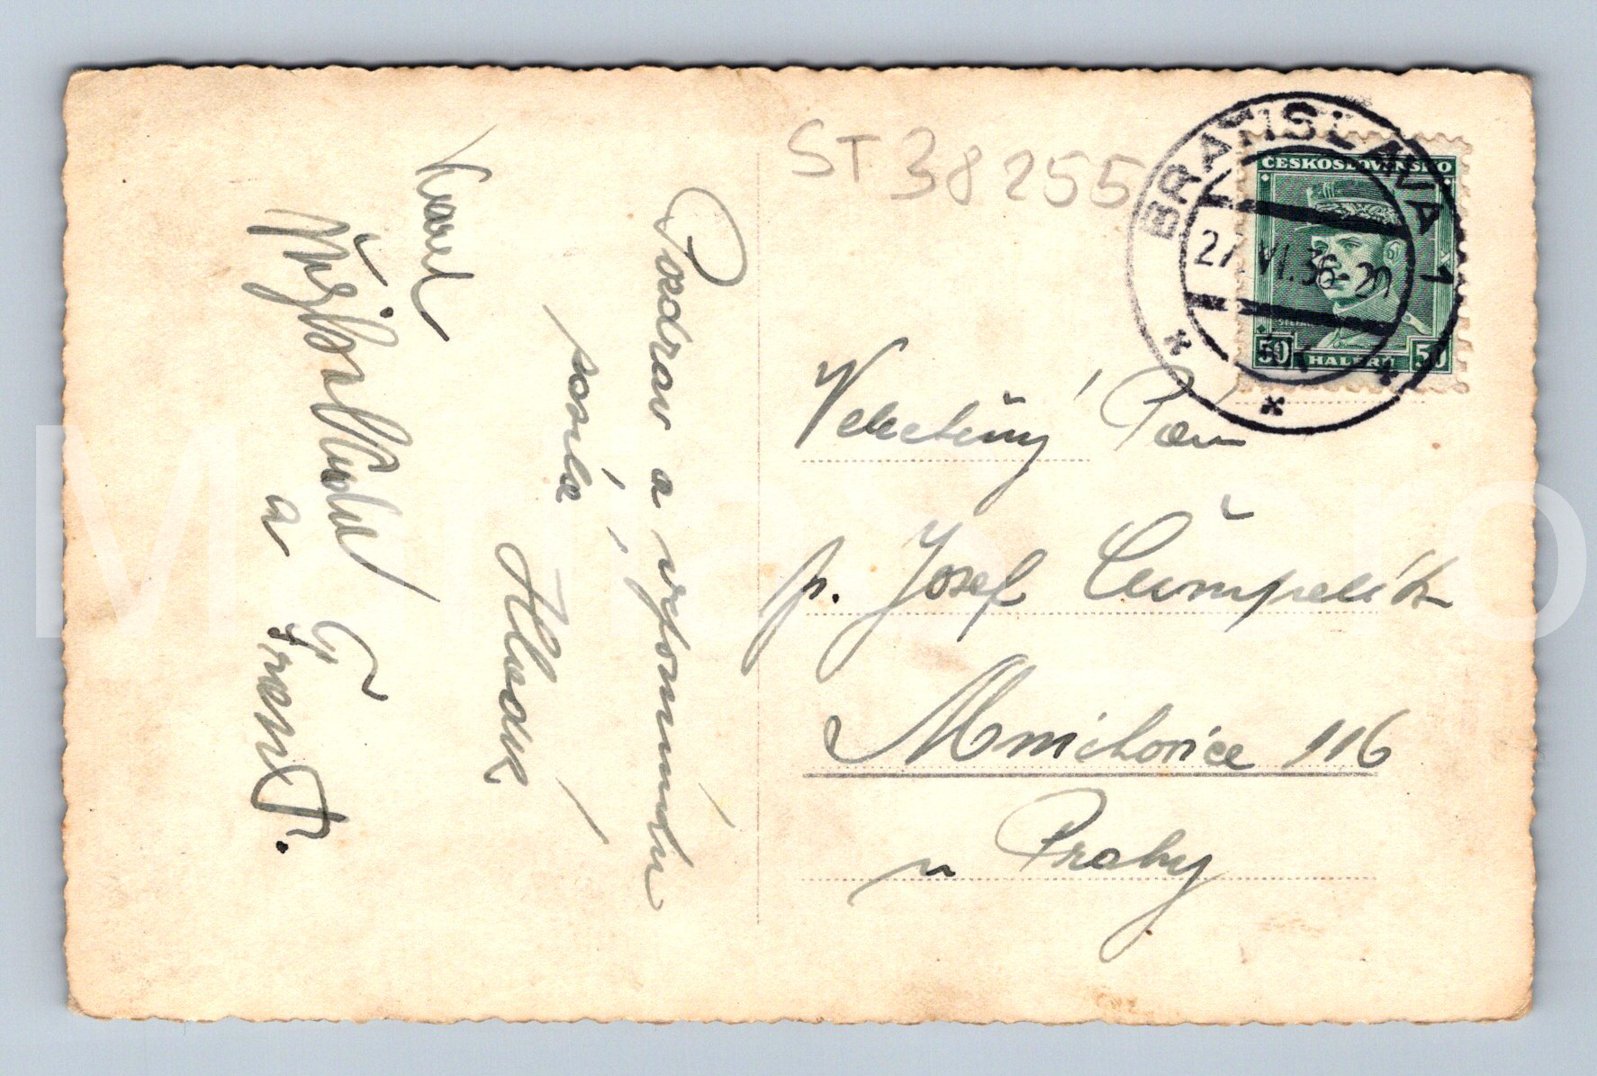 ST 38255
BRATISLAVA 1
27.VI.36-20
ČESKOSLOVENSKO
50 HALÉŘŮ 50
Pozdrav a vzpomínku
posílá
Hladík
Karel
a
Velectěný Pan
p. Josef Čumpelík
Mnichovice 116
u Prahy